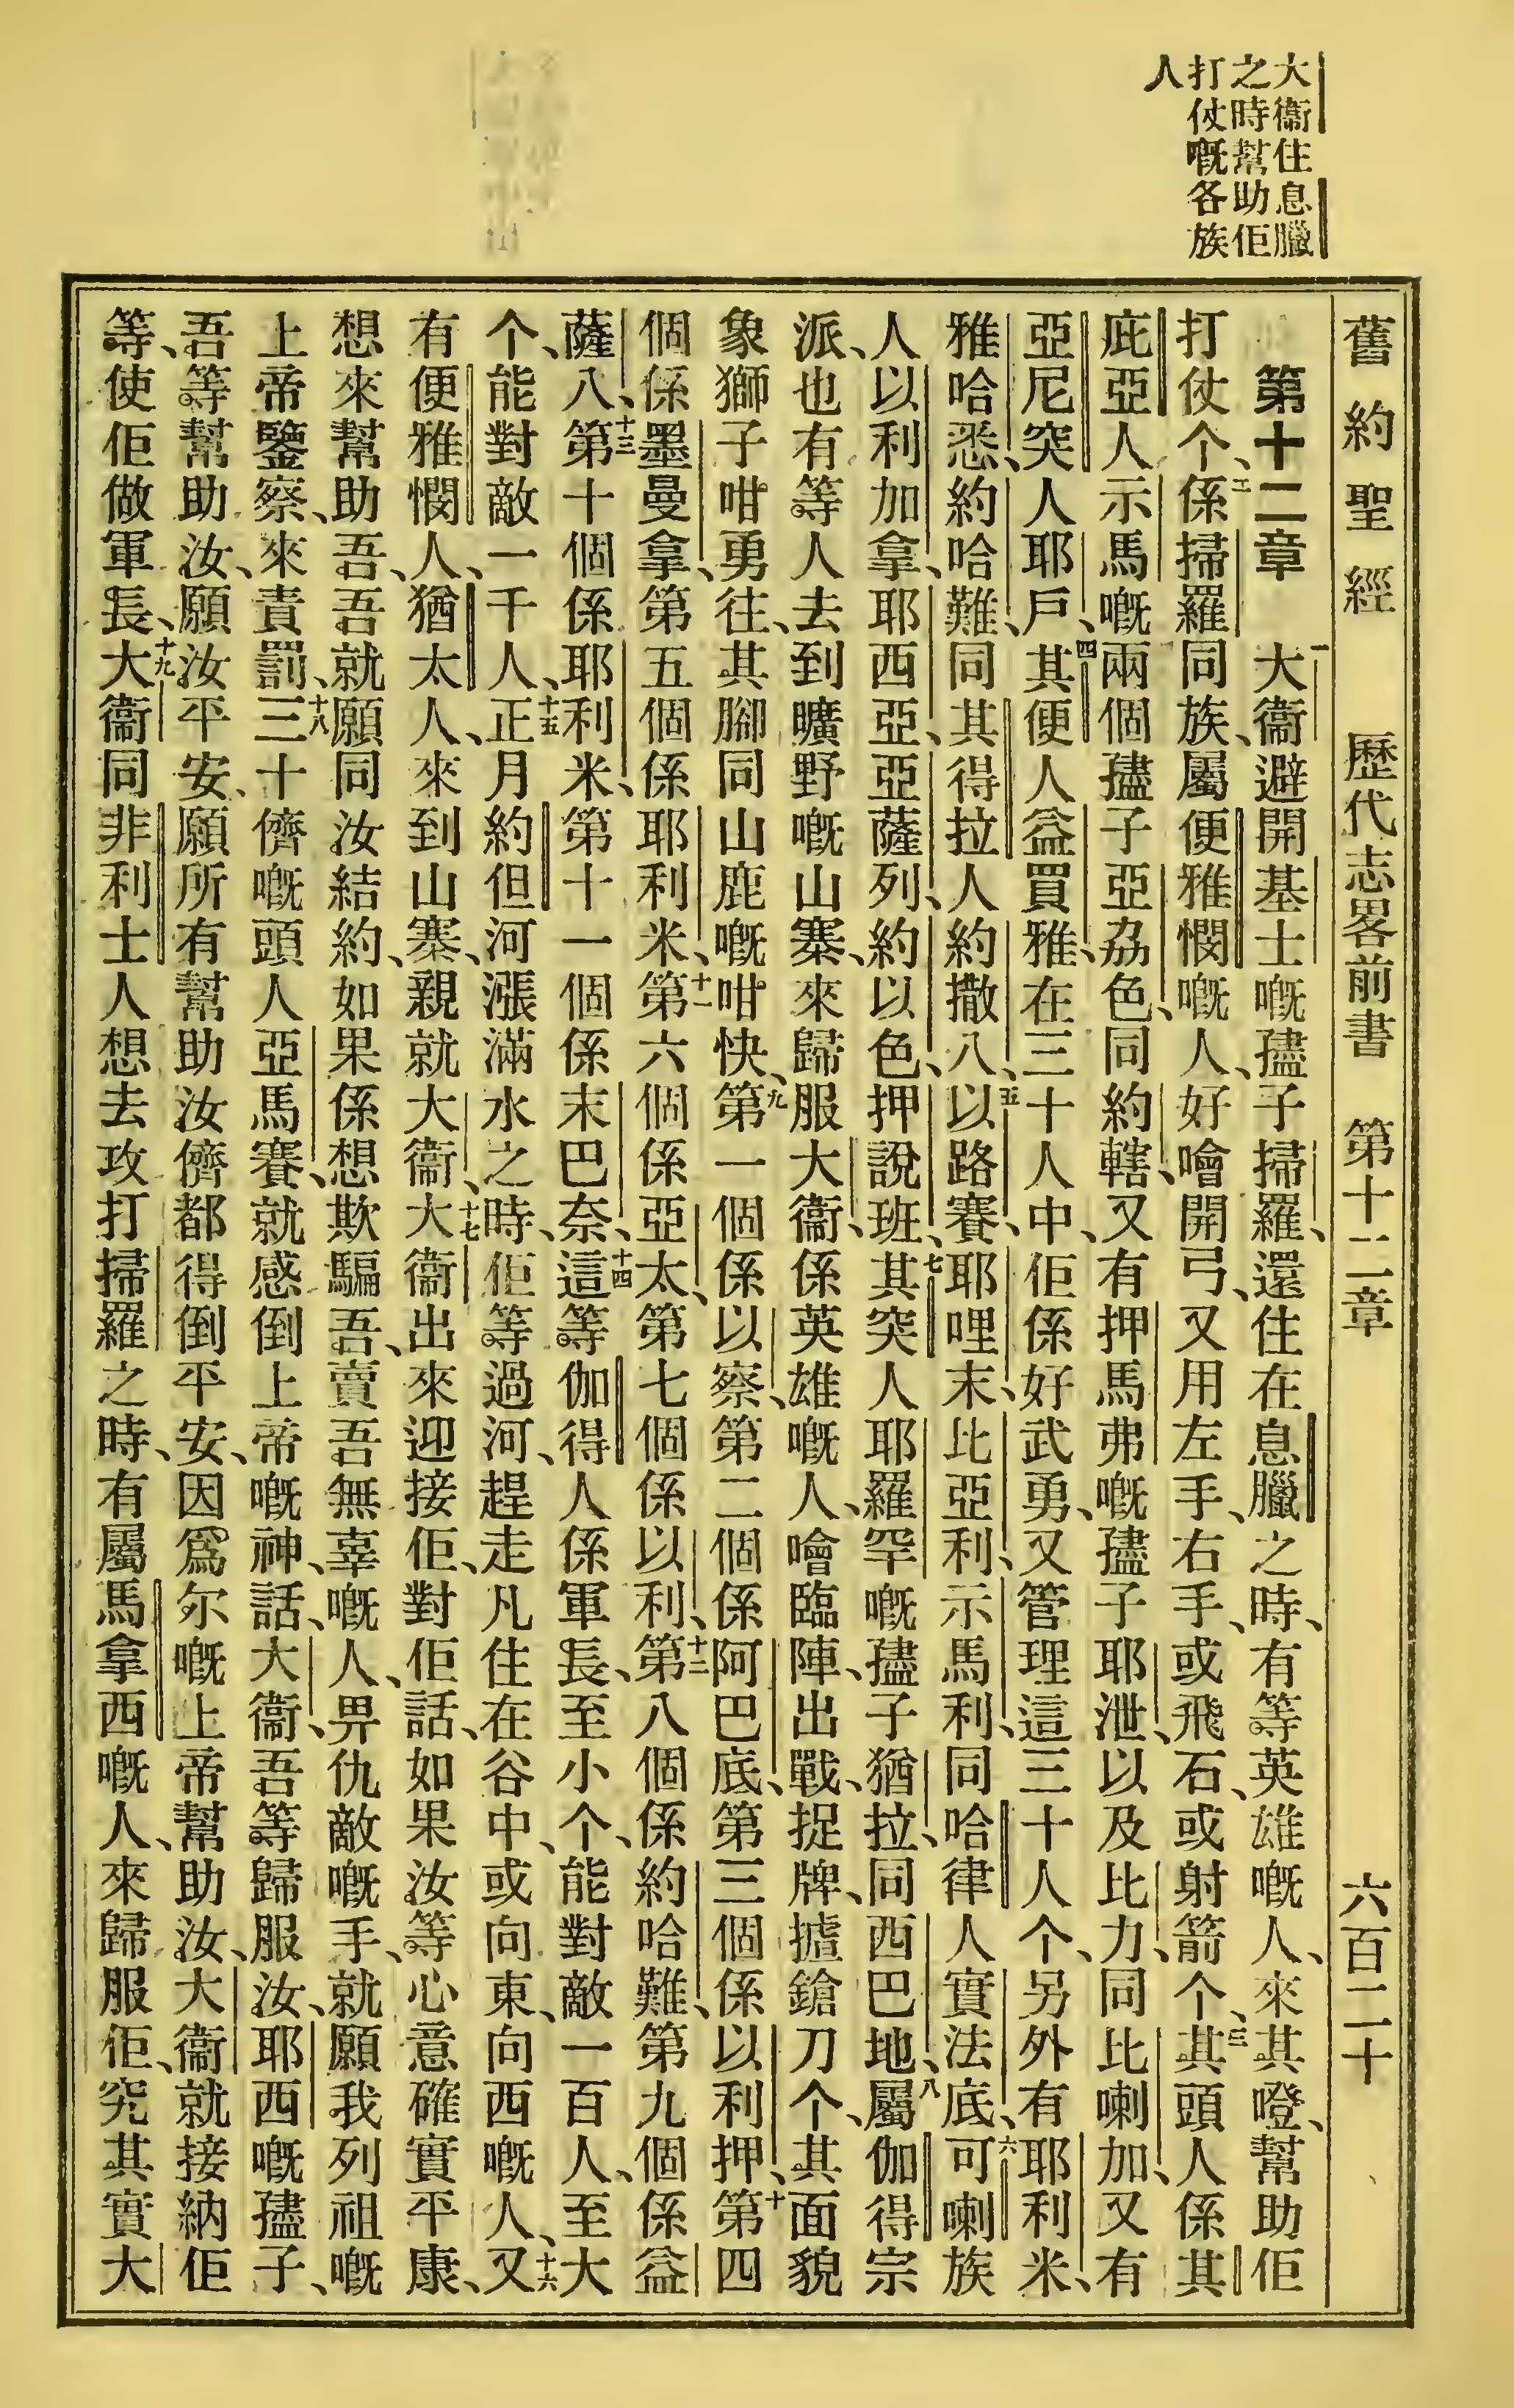 大衞住息臘
之時幫助佢
打仗嘅各族
人
舊約聖經 歷代志畧前書 第十二章 六百二十
第十二章 一大衞避開基士嘅孻子掃羅、還住在息臘之時、有等英雄嘅人、來其嶝、幫助佢
打仗个、二係掃羅同族、屬便雅憫嘅人、好噲開弓、又用左手、右手、或飛石、或射箭个、三其頭人係其
庇亞人示馬嘅兩個孻子亞劦色、同約轄、又有押馬弗嘅孻子耶泄、以及比力、同比喇加、又有
亞尼突人耶戶、四其便人益買雅、在三十人中、佢係好武勇、又管理這三十人个、另外有耶利米、
雅哈悉、約哈難、同其得拉人約撒八、五以路賽、耶哩末、比亞利、示馬利、同哈律人實法底、六可喇族
人以利加拿、耶西亞、亞薩列、約以色、押說班、七其突人耶羅罕嘅孻子猶拉、同西巴地、八屬伽得宗
派、也有等人去到曠野嘅山寨、來歸服大衞、係英雄嘅人、噲臨陣、出戰、捉牌、摣鎗刀个、其面貌
象獅子咁勇往、其腳同山鹿嘅咁快、九第一個係以察、第二個係阿巴底、第三個係以利押、十第四
個係墨曼拿、第五個係耶利米、十一第六個係亞太、第七個係以利、十二第八個係約哈難、第九個係益
薩八、十三第十個係耶利米、第十一個係末巴奈、十四這等伽得人係軍長、至小个、能對敵一百人、至大
个、能對敵一千人、十五正月約但河漲滿水之時、佢等過河、趕走凡住在谷中、或向東、向西嘅人、十六又
有便雅憫人、猶太人、來到山寨、親就大衞、十七大衞出來迎接佢、對佢話、如果汝等心意確實平康、
想來幫助吾、吾就願同汝結約、如果係想欺騙吾、賣吾無辜嘅人、畀仇敵嘅手、就願我列祖嘅
上帝鑒察、來責罰、十八三十儕嘅頭人亞馬賽、就感倒上帝嘅神、話、大衞、吾等歸服汝、耶西嘅孻子、
吾等幫助汝、願汝平安、願所有幫助汝儕都得倒平安、因爲尔嘅上帝幫助汝、大衞就接納佢
等、使佢做軍長、十九大衞同非利士人想去攻打掃羅之時、有屬馬拿西嘅人、來歸服佢、究其實大